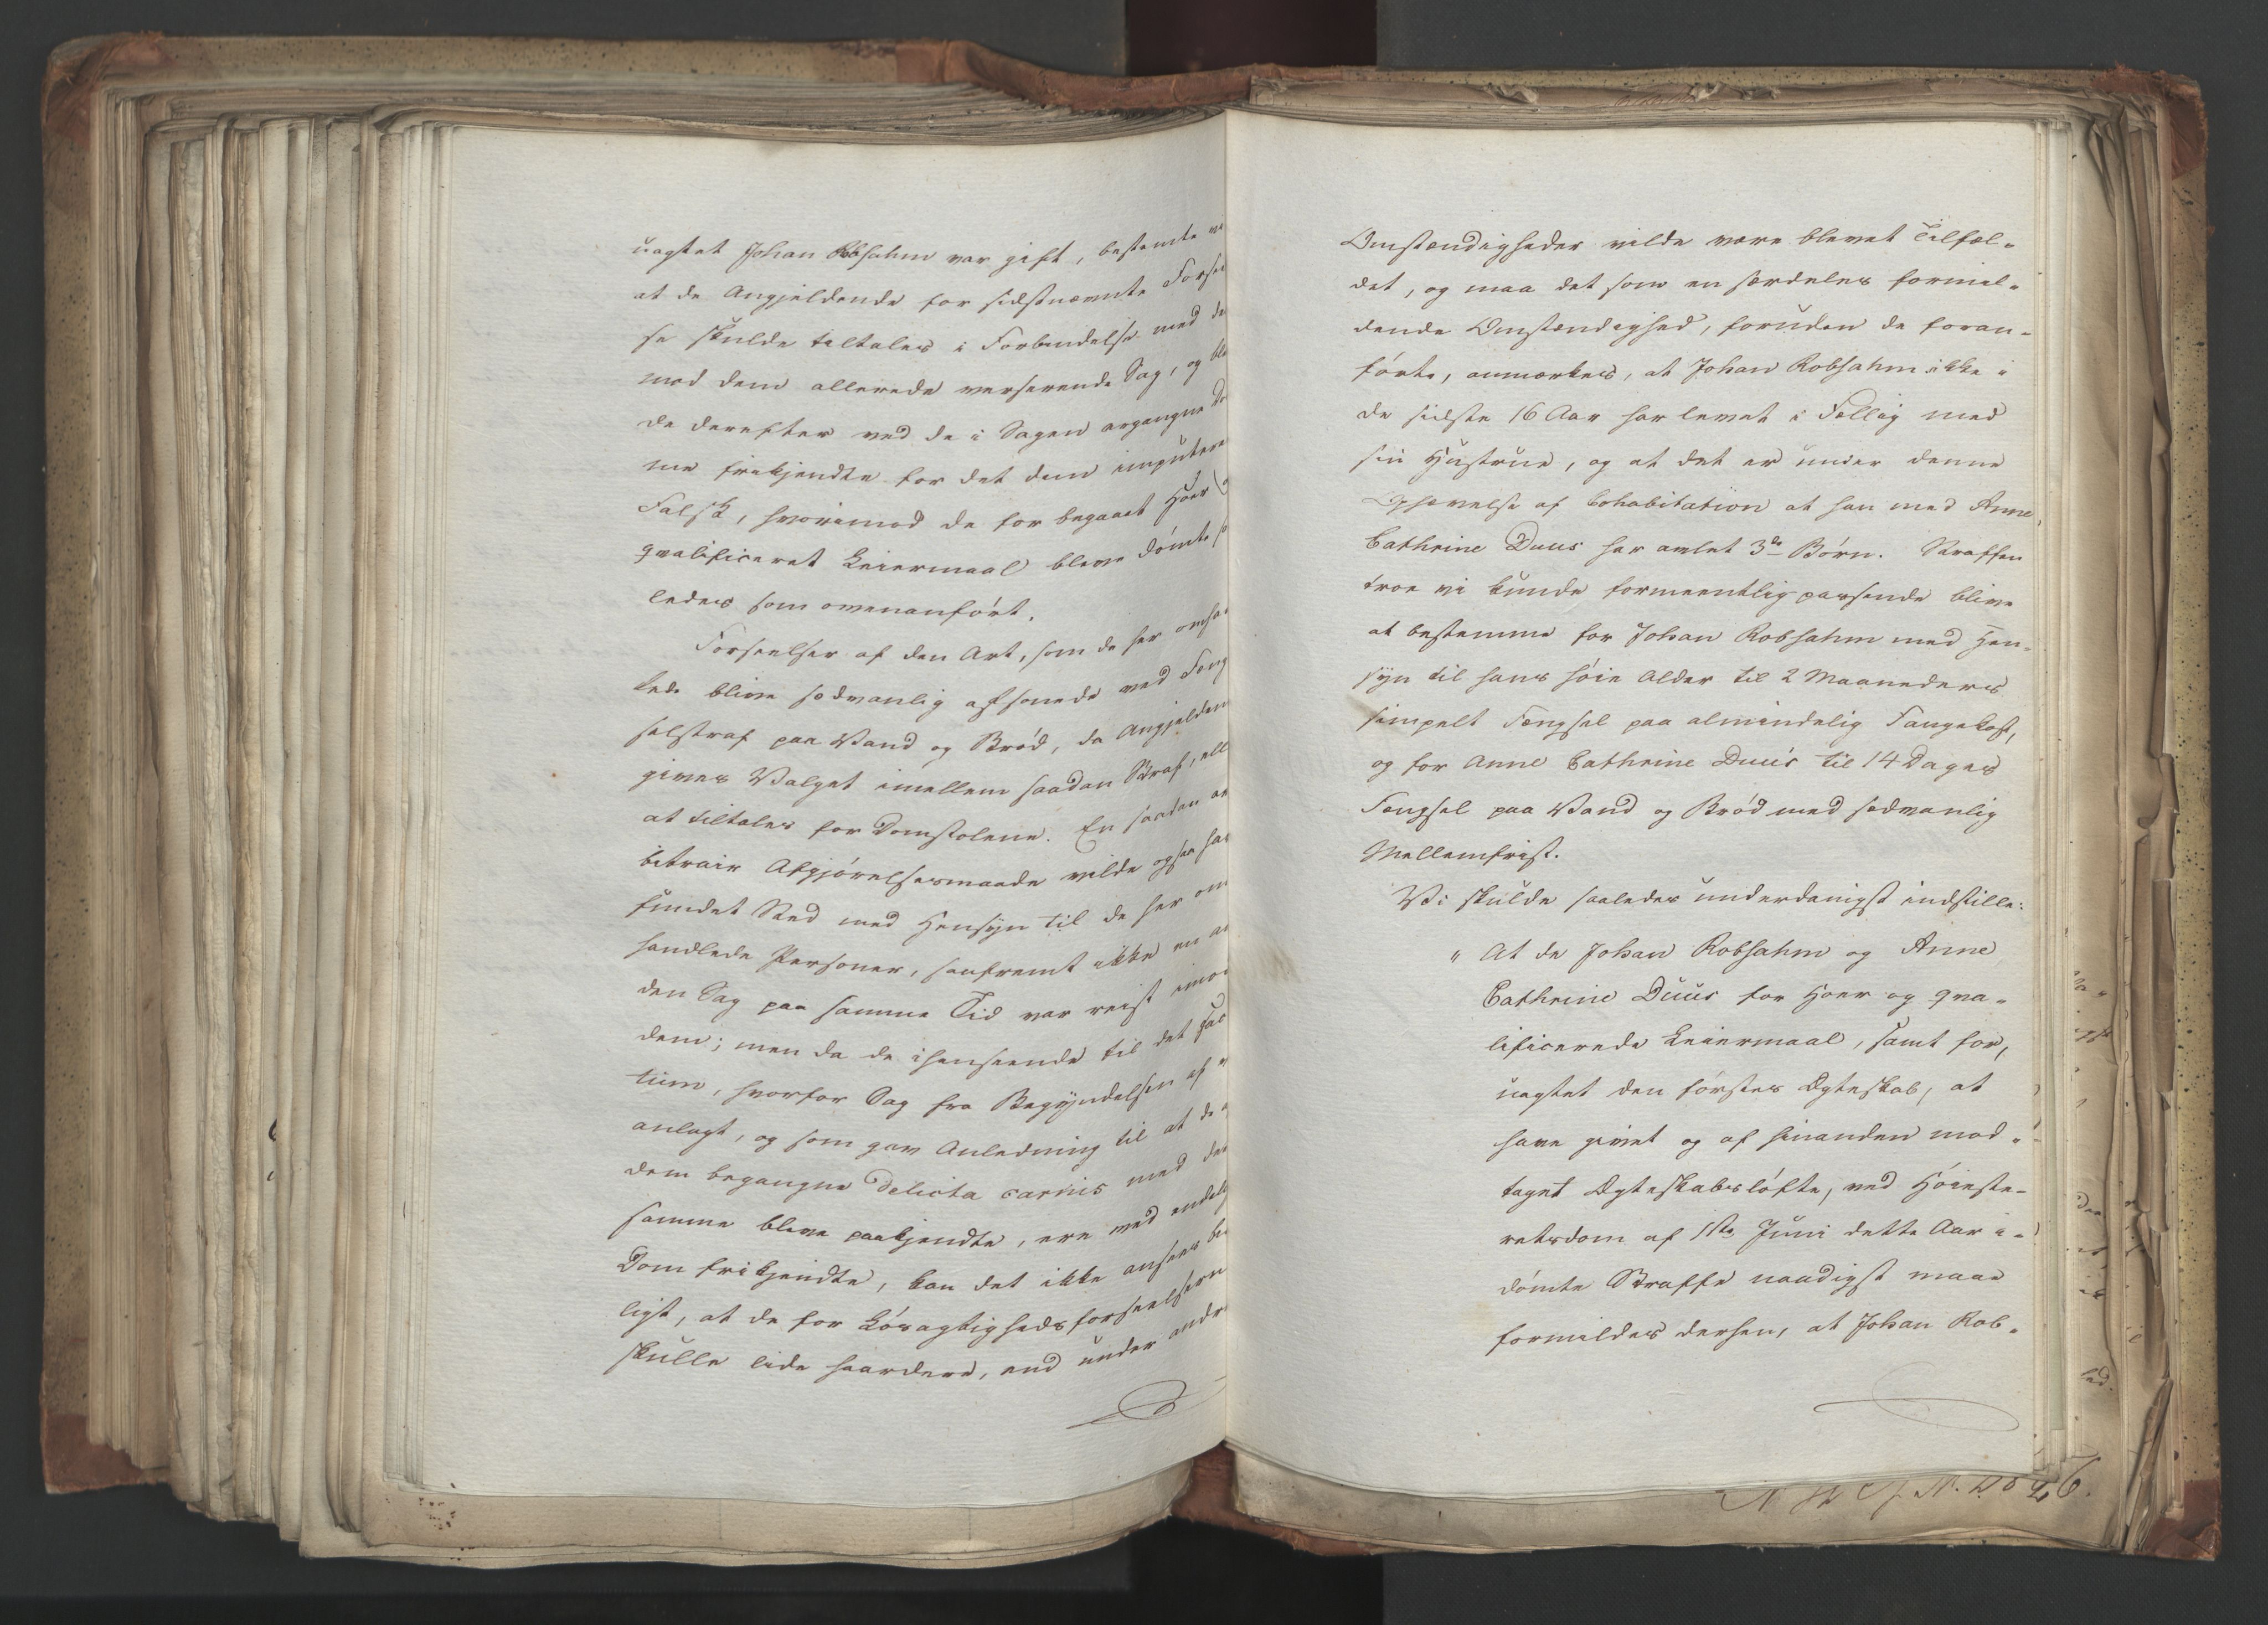 uagtet Johan Robsahm var gift, bestemte vi
at de Angjeldende for sidstnævnte Forseel
se skulde tiltales i Forbindelse med de
mod dem allerede verserende Sag, og ble
de derefter ved de i Sagen ergangne Do
me frikjendte for det dem imputere
Falsk, hvorimod de for begaaet Hoer
qvalificeret Leiermaal bleve dømte
ledes som ovenanført.
Forseelser af den Art, som de her omhan
lede blive sedvanlig afsonede ved Fæng
selstraf paa Vand og Brød, da Angjelden
gives Valget imellem saadan Straf, elle
at tiltales for Domstolene. En saadan ar
bitrair Afgjørelsesmaade vilde ogsaa hav
fundet Sted med Hensyn til de her om
handlede Personer, saafremt ikke en an
den Sag paa samme Tid var reist imo
dem; men da de ihenseende til det fac
tum, hvorfor Sag fra Begyndelsen af
anlagt, og som gav Anledning til at de
dem begangne delicta carnis med det
samme bleve paakjendte, ere ved endel
Dom frikjendte, kan det ikke ansees bil
ligt, at de for Løsagtighedsforseelserne
skulle lide haardere, end under andre
Omstændigheder vilde være blevet Tilfæl-
det, og maa det som en særdeles formil-
dende Omstændighed, foruden de foran-
førte, anmærkes, at Johan Robsahm ikke i
de sidste 16 Aar har levet i Fællig med
sin Hustrue, og at det er under denne
Ophævelse af Cohabitation at han med Anne
Cathrine Duus har avlet 3de Børn. Straffen
troe vi kunde formeentlig passende blive
at bestemme for Johan Robsahm med Hen-
syn til hans høie Alder til 2 Maaneders
simpelt Fængsel paa almindelig Fangekost,
og for Anne Cathrine Duus til 14 Dages
Fængsel paa Vand og Brød med sedvanlig
Mellemfrist.
Vi skulde saaledes underdanigst indstille:
" At de Johan Robsahm og Anne
Cathrine Duus for Hoer og qva-
lificerede Leiermaal, samt for,
uagtet den førstes Ægteskab, at
have givet og af hinanden mod-
taget Ægteskabsløfte, ved Høieste-
retsdom af 1ste Juni dette Aar i-
dømte Straffe naadigst maae
formildes derhen, at Johan Rob-